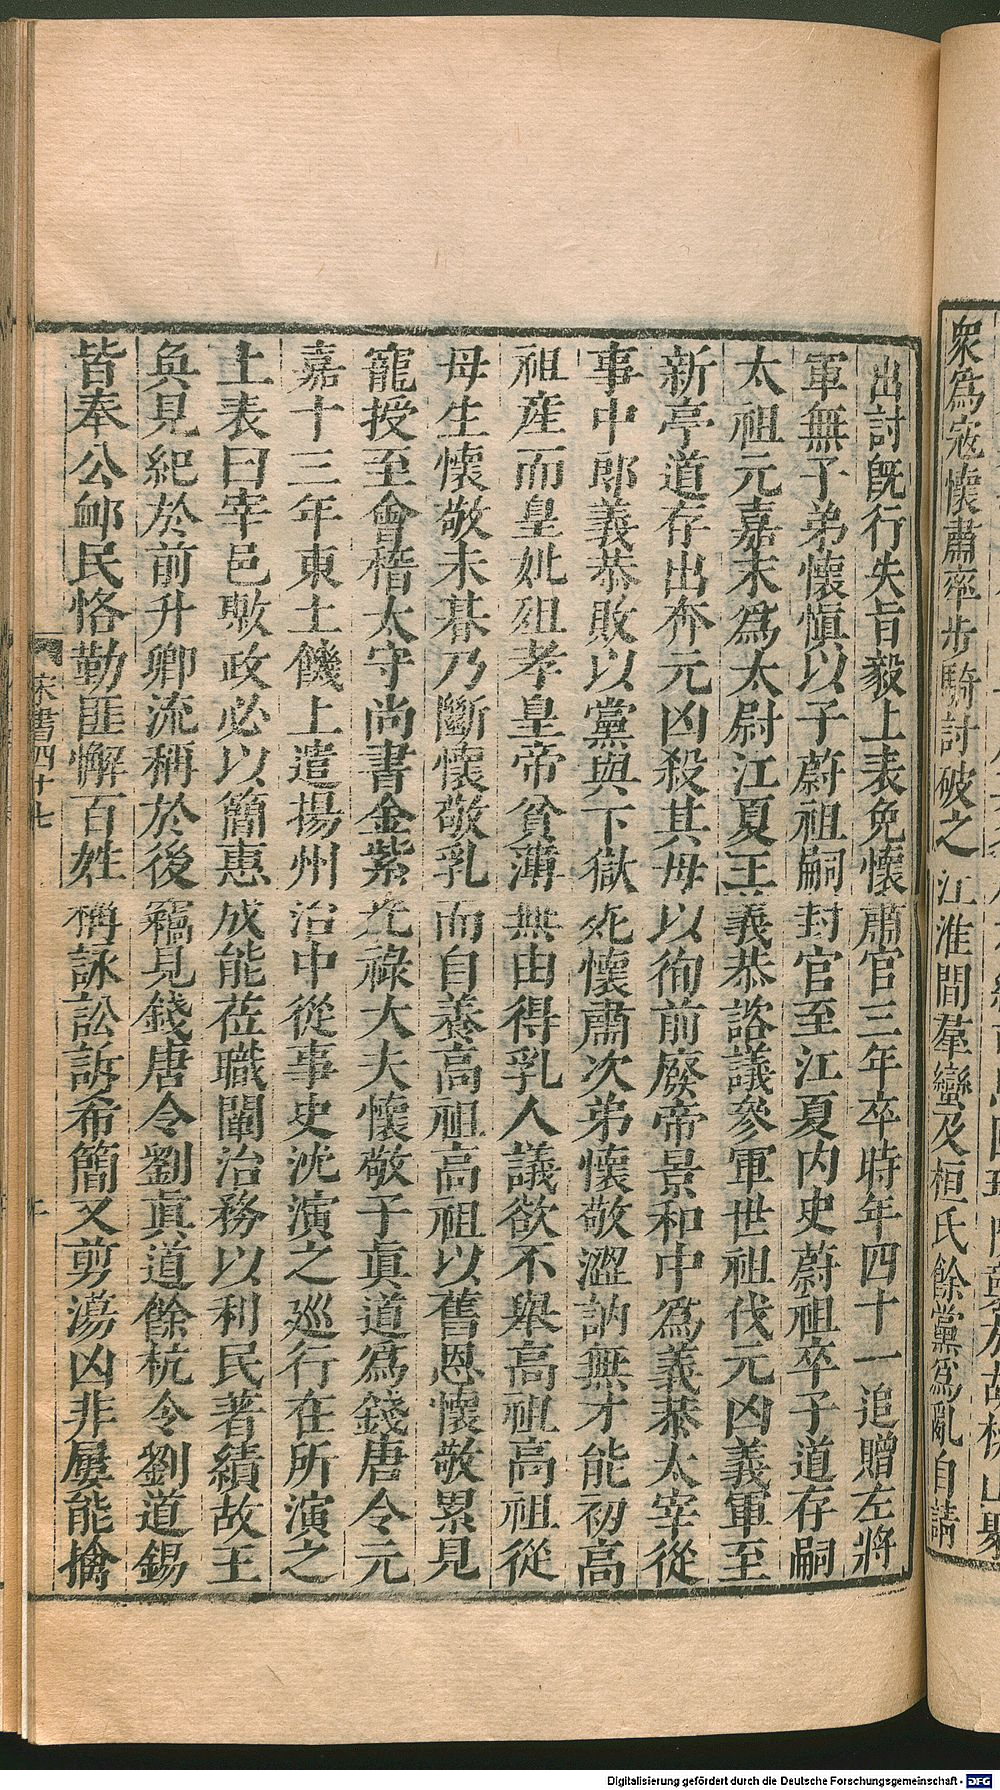 衆爲寇懷肅率步騎討破之江淮間羣蠻及桓氏餘黨爲亂自請
出討旣行失旨毅上表免懷肅官三年卒時年四十一追贈左將
軍無子弟懷愼以子蔚祖嗣封官至江夏内史蔚祖卒子道存嗣
太祖元嘉末爲太尉江夏王義恭諮議參軍世祖伐元凶義軍至
新亭道存出奔元凶殺其母以徇前廢帝景和中爲義恭太宰從
事中郎義恭敗以黨與下獄死懷肅次弟懷敬澀訥無才能初高
祖產而皇妣殂孝皇帝貧薄無由得乳人議欲不舉高祖高祖從
母生懷敬未朞乃斷懷敬乳而自養高祖高祖以舊恩懷敬累見
寵授至會稽太守尚書金紫光祿大夫懷敬子眞道爲錢唐令元
嘉十三年東土饑上遣揚州治中從事史沈演之巡行在所演之
上表曰宰邑敷政必以簡惠成能莅職闡治務以利民著績故王
奐見紀於前升卿流稱於後竊見錢唐令劉眞道餘杭令劉道錫
皆奉公卹民恪勤匪懈百姓稱詠訟訴希簡又剪蕩凶非屢能擒
宋書四十七
十
Digitalisierung gefördert durch die Deutsche Forschungsgemeinschaft - DFG